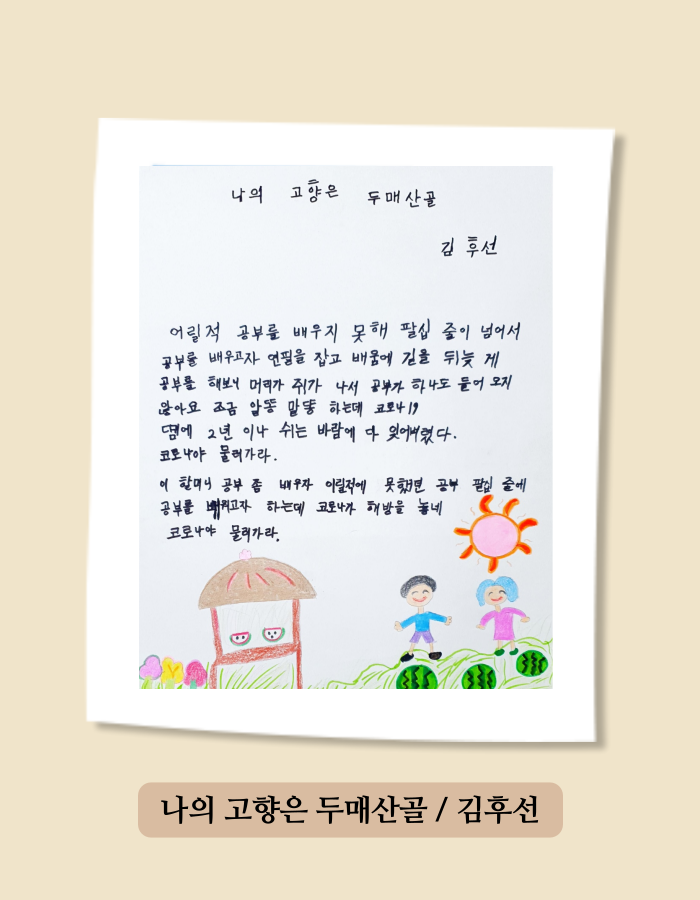 나의 고향은 두매산골
김후선
어릴적 공부를 배우지 못해 팔십 줄이 넘어서
공부를 배우고자 연필을 잡고 배움에 길을 뒤늦게
공부를 해보니 머리가 쥐가 나서 공부가 하나도 들어 오지
않아요 조금 알똥 말똥 하는데 코로나19
땜에 2년 이나 쉬는 바람에 다 잊어버렸다.
코로나야 물러가라.
이 할머니 공부 좀 배우자 어릴적에 못했던 공부 팔십 줄에
공부를 배우고자 하는데 코로나가 해방을 놓네
코로나야 물러가라.
나의 고향은 두매산골 / 김후선